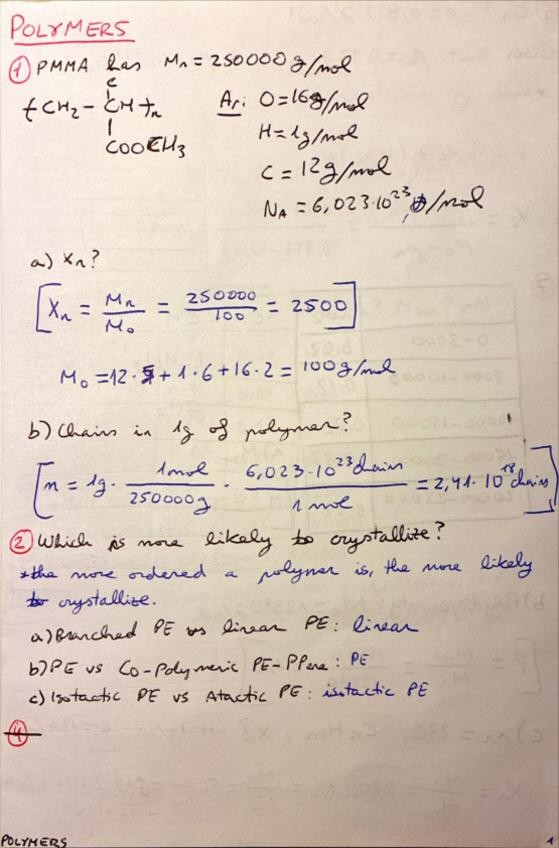 POLYMERS
① PMMA has Mn = 250000 g/mol
C
-(CH2 - CH-)n
COOCH3
Ar: O = 16g/mol
H = 1g/mol
C = 12g/mol
NA = 6,023·10^23 /mol
a) Xn?
[Xn = Mn/Mo = 250000/100 = 2500]
Mo = 12·5 + 1·6 + 16·2 = 100g/mol
b) Chains in 1g of polymer?
[n = 1g · 1mol/250000g · 6,023·10^23 chains/1 mol = 2,41·10^18 chains]
② Which is more likely to crystallize?
*the more ordered a polymer is, the more likely
to crystallize.
a) Branched PE vs linear PE: linear
b) PE vs Co-Polymeric PE-PPene: PE
c) Isotactic PE vs Atactic PE: isotactic PE
④
POLYMERS 1